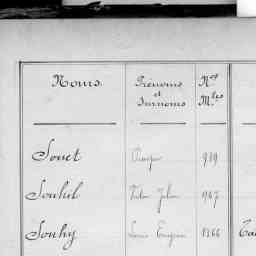 Noms. Prénoms et Surnoms Nos Mles
Souet Prosper 939
Souhil Victor Julien 967
Souhy Louis Eugène 1366